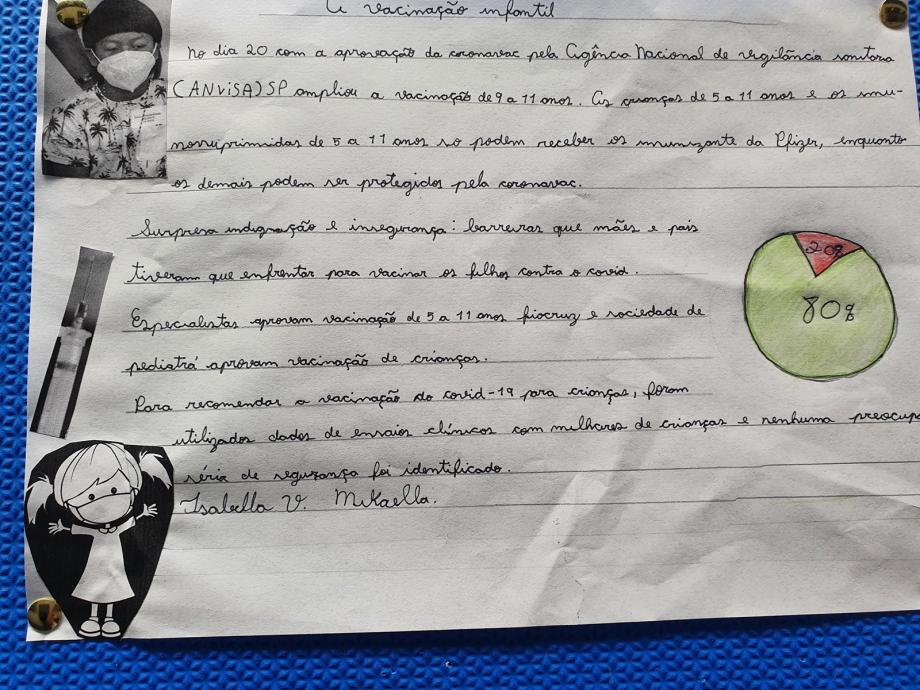 A vacinação infantil
No dia 20 com a aprovação da coronavac pela Agência Nacional de vigilância sanitaria
(ANViSA) SP ampliou a vacinação de 9 a 11 anos. As crianças de 5 a 11 anos e os imu-
nossuprimidas de 5 a 11 anos só podem receber os imunizante da Pfizer, enquanto
os demais podem ser protegidos pela coronavac.
Surpresa indignação e insegurança: barreiras que mães e pais
tiveram que enfrentar para vacinar os filhos contra o covid.
20%
80%
Especialistas aprovam vacinação de 5 a 11 anos fiocruz e sociedade de
pediatrá aprovam vacinação de crianças.
Para recomendar a vacinação do covid-19 para crianças, foram
utilizados dados de ensaios clínicos com milhares de crianças e nenhuma preocup
séria de segurança foi identificado.
Isabella V. Mikaella.